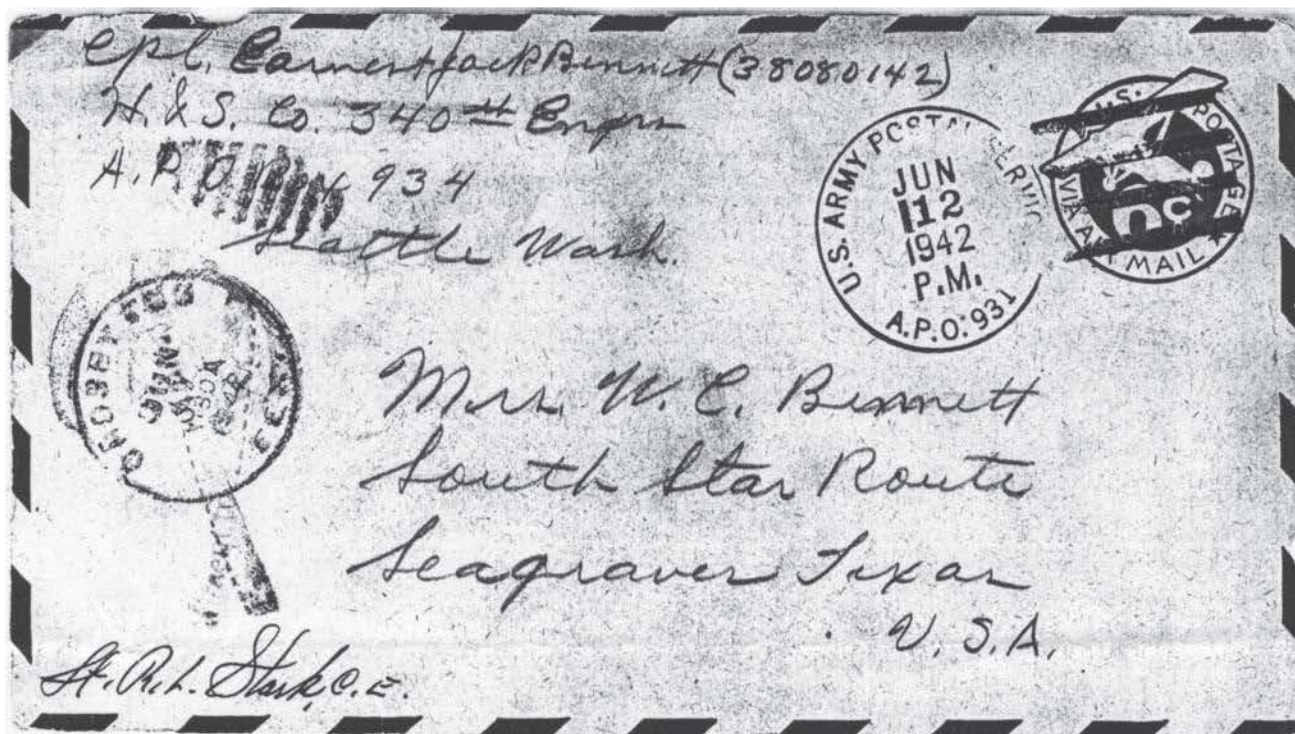 Cpl. Earnest Jack Bennett (38080142)
H. & S. Co. 340th Engrs
A.P.O. 934
Seattle Wash.
U.S. ARMY POSTAL SERVICE
JUN
12
1942
P.M.
A.P.O. 931
U.S. POSTAGE
6c
VIA AIR MAIL
JUN
Mrs. W. C. Bennett
South Star Route
Seagraves Texas
U.S.A.
Lt. R. L. Stark, C.E.